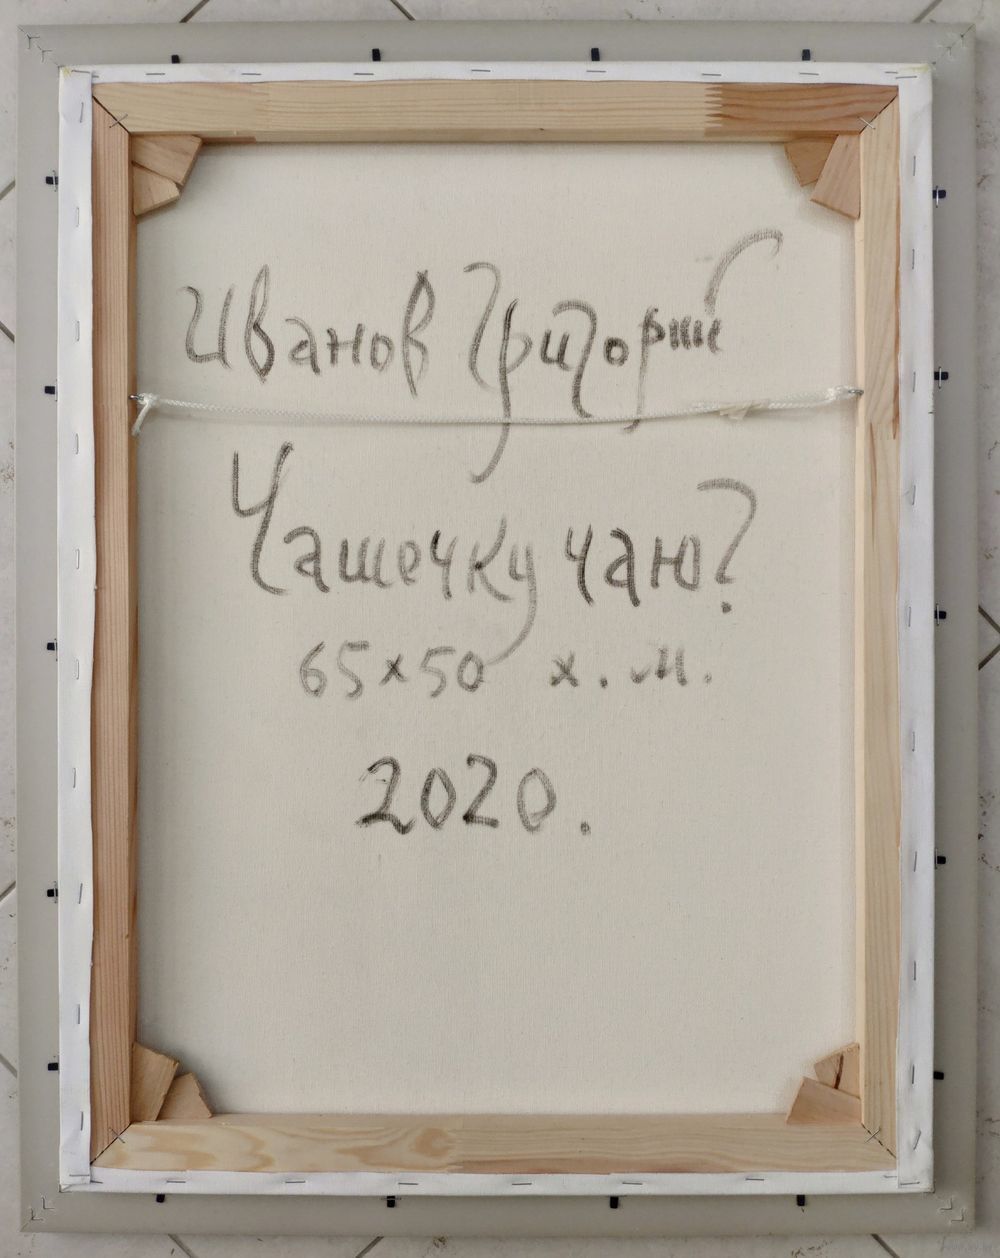 Иванов Григорий
Чашечку чаю?
65×50 х. м.
2020.